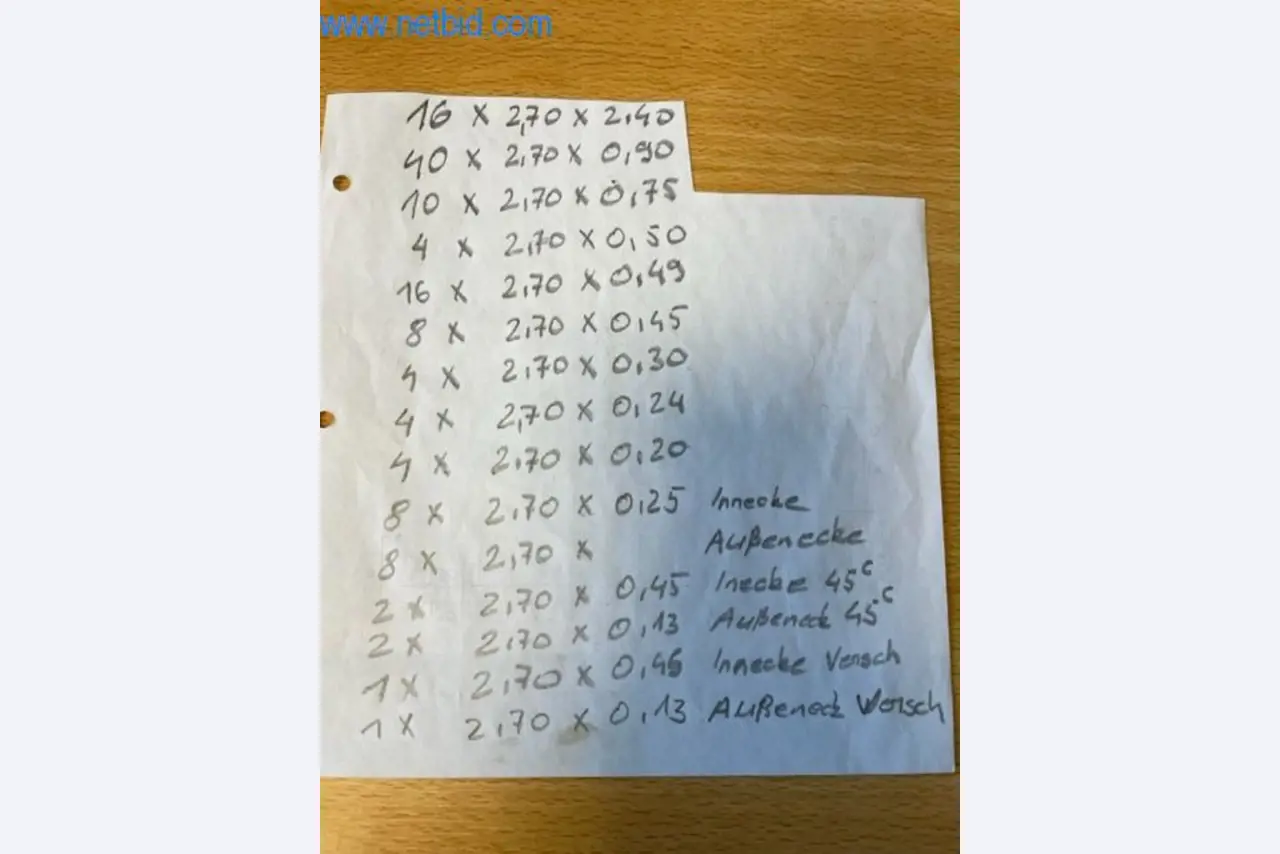 www.netbid.com
16 x 2,70 x 2,40
40 x 2,70 x 0,90
10 x 2,70 x 0,75
4 x 2,70 x 0,50
16 x 2,70 x 0,49
8 x 2,70 x 0,45
4 x 2,70 x 0,30
4 x 2,70 x 0,24
4 x 2,70 x 0,20
8 x 2,70 x 0,25 Innecke
8 x 2,70 x Außenecke
2 x 2,70 x 0,45 Inecke 45°
2 x 2,70 x 0,13 Außeneck 45°
1 x 2,70 x 0,45 Innecke Versch
1 x 2,70 x 0,13 Außeneck Versch